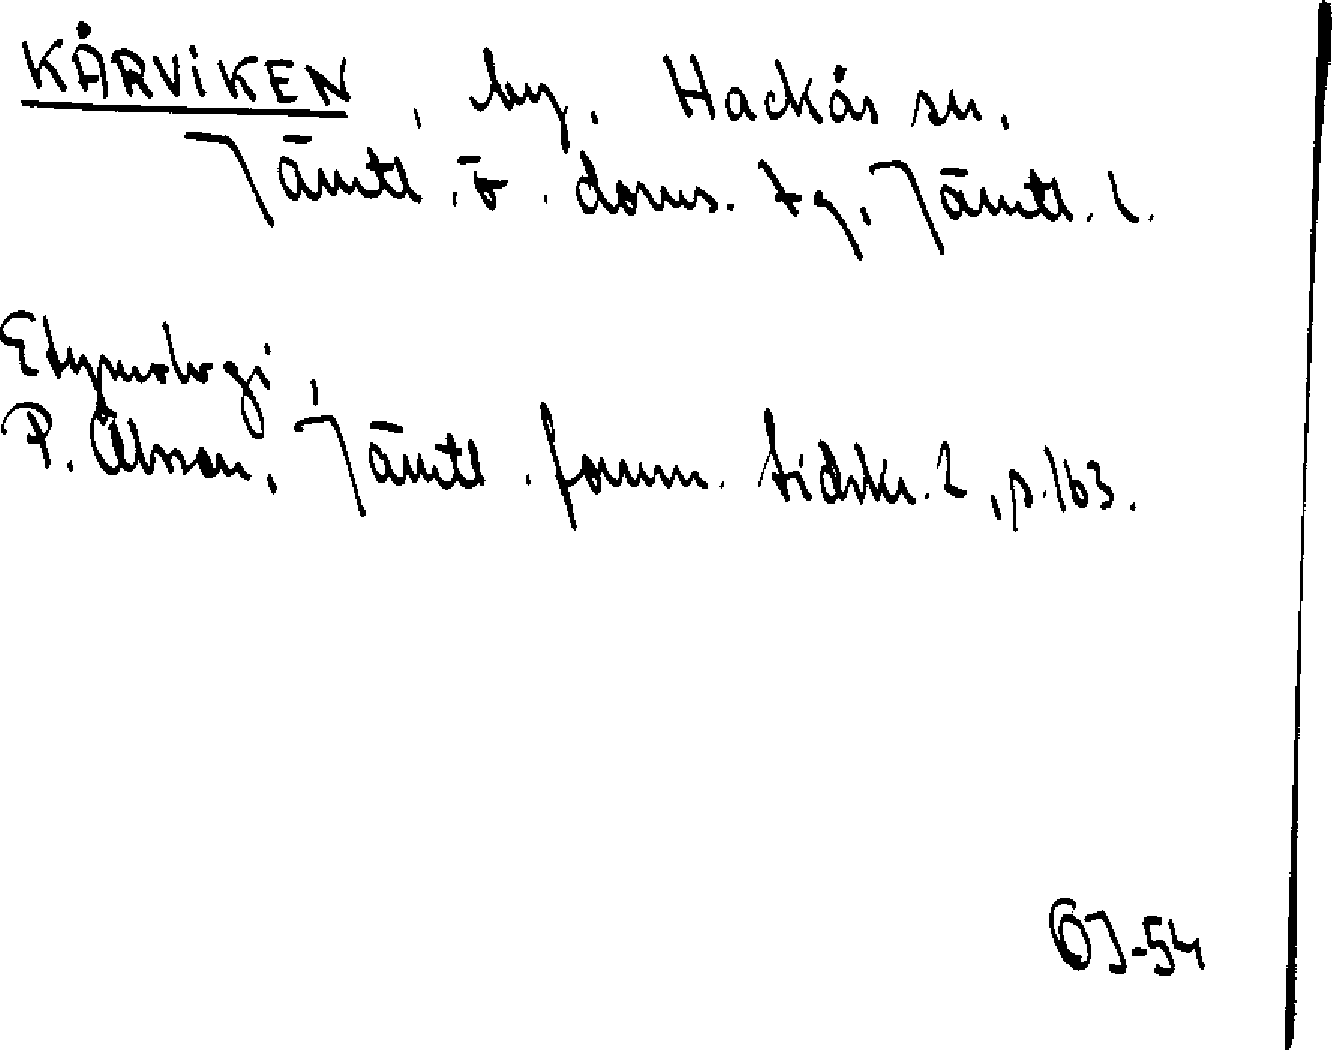 KÅRVIKEN, by. Hackås sn.
Jämtl. ö. doms. tg. Jämtl. l.
Etymologi,
P. Olsson, Jämtl. fornm. tidskr. 2, p. 163.
OJ-54